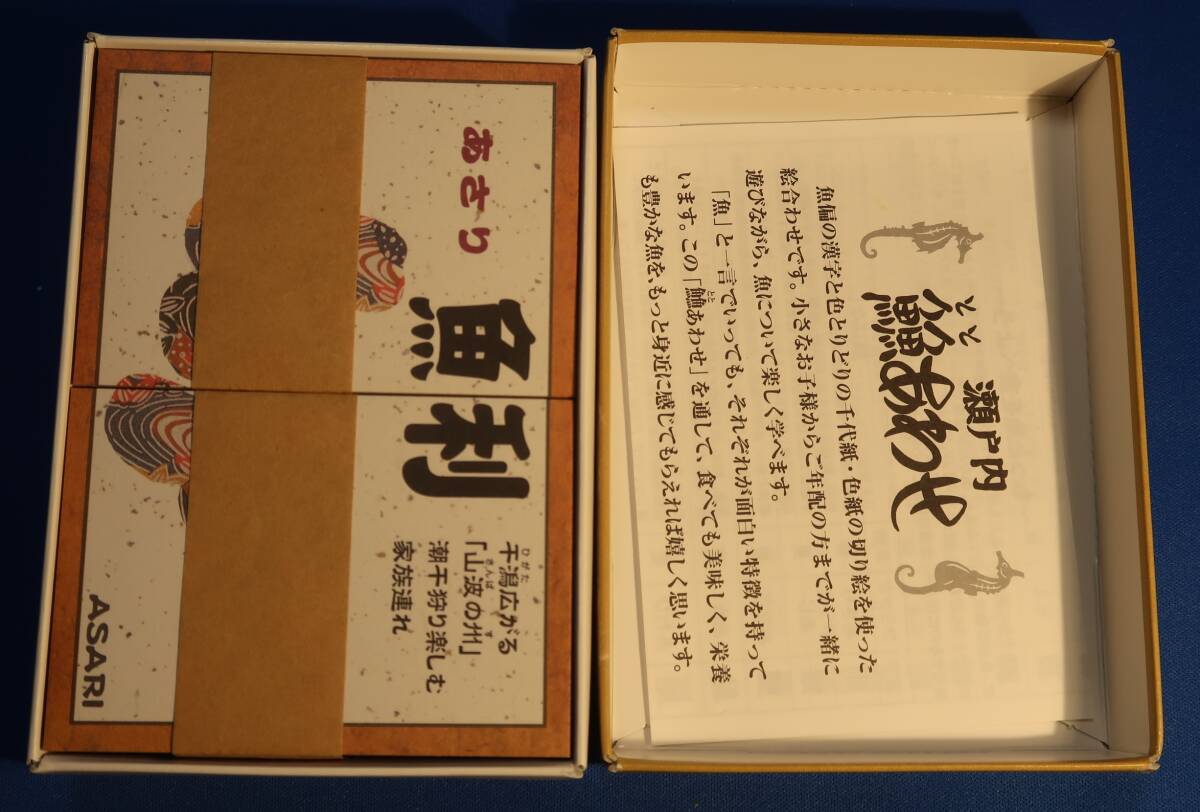 あさり
魚利
ひがた
干潟広がる
さんば す
「山波の州」
潮干狩り楽しむ
家族連れ
ASARI
瀬戸内
とと
鱠あわせ
魚偏の漢字と色とりどりの千代紙・色紙の切り絵を使った
絵合わせです。小さなお子様からご年配の方までが一緒に
遊びながら、魚について楽しく学べます。
「魚」と一言でいっても、それぞれが面白い特徴を持って
とと
います。この「鱠あわせ」を通して、食べても美味しく、栄養
も豊かな魚を、もっと身近に感じてもらえれば嬉しく思います。